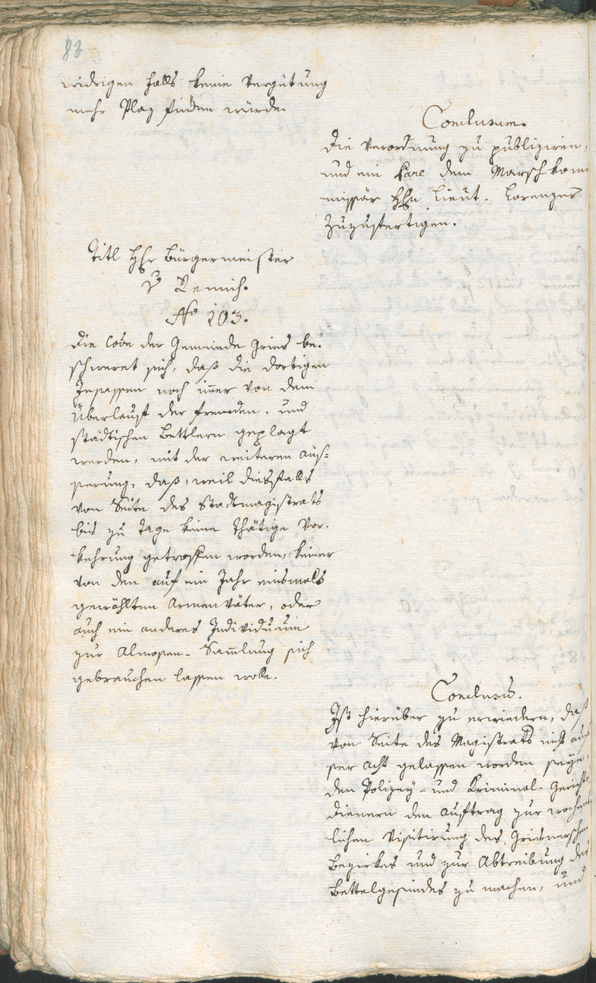 83
widrigen Falls keine Vergütung
mehr Plaz finden würde.
Conclusum.
Die Verordnung zu publiziren,
und ein Pare dem Marsch kom
missär Hhn Lieut. Lorenzer
zuzufertigen.
Titl Hhr Bürgermeister
v Remich.
No 103.
Die Löbe der Gemeinde Gries be-
schweret sich, daß die dortigen
Insassen noch imer von dem
Überlauf der fremden, und
städtischen Bettlern geplagt
werden, mit der weiteren Aüs-
serung, daß, weil diesfalls
von Seite des Stadtmagistrats
bis zu Tage keine thätige Vor-
kehrung getroffen worden, keiner
von den auf ein Jahr einsmals
gewählten Armen väter, oder
auch ein anderes Individuum
zur Almosen-Samlung sich
gebrauchen lassen wolle.
Conclusum.
Ist hierüber zu erwiedern, daß
von Seite des Magistrats nicht auf
ser Acht gelassen worden seye,
den Polizey- und Kriminal-Gerichts
dienern den Auftrag zur wochent
lichen Visitirung des Griesnerschen
Bezirkes und zur Abtreibung des
Bettelgesindes zu machen, und